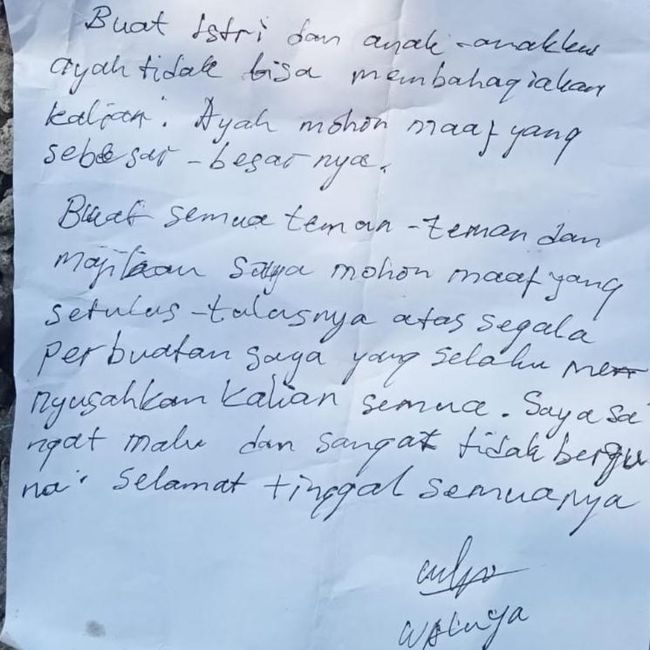 Buat Istri dan anak-anakku
ayah tidak bisa membahagiakan
kalian. Ayah mohon maaf yang
sebesar-besarnya.
Buat semua teman-teman dan
majikan saya mohon maaf yang
setulus-tulusnya atas segala
perbuatan saya yang selalu me
nyusahkan kalian semua. Saya sa
ngat malu dan sangat tidak bergu
na. Selamat tinggal semuanya